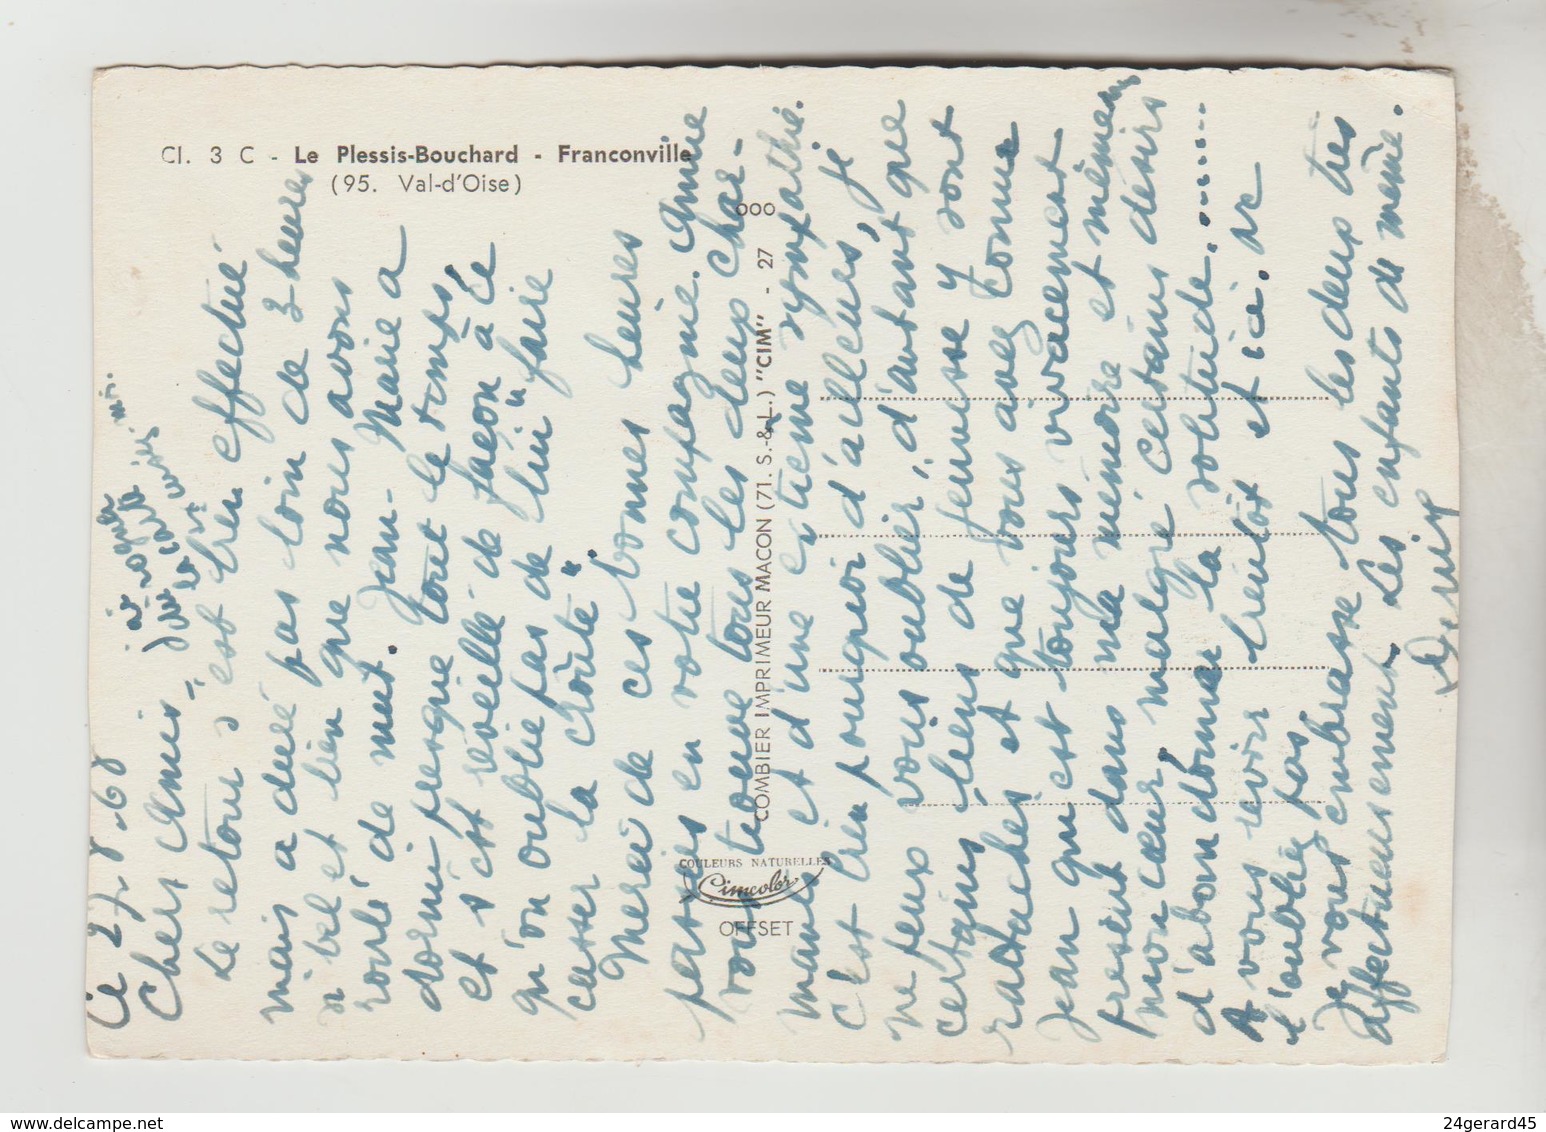 Cl. 3 C - Le Plessis-Bouchard - Franconville
(95. Val-d'Oise)
COMBIER IMPRIMEUR MACON (71. S.-&-L.) "CIM" - 27 000
COULEURS NATURELLES
Cimcolor
OFFSET
Ce 27-8-68
Chers Amis,
Le retour s'est bien effectué
mais a duré pas loin de 3 heures
si bel et bien que nous avons
roulé de nuit. Jean-Marie a
dormi presque tout le temps,
et s'est réveillé de façon à ce
qu'on oublie pas de "lui" faire
casser la croûte".
Merci de ces bonnes heures
passées en votre compagnie. Anne
vous trouve tous les deux char-
mants et d'une extrême sympathie.
C'est bien pourquoi d'ailleurs, je
ne peux vous oublier, d'autant que
certains liens de jeunesse y sont
rattachés et que vous avez connu
Jean qui est toujours vivacement
présent dans ma mémoire et même
mon cœur, malgré certains désirs
d'abandonner la solitude........
A vous revoir bientôt et ici. Ne
l'oubliez pas.
Je vous embrasse tous les deux très
affectueusement. Les enfants de même.
Denis
24gerard45